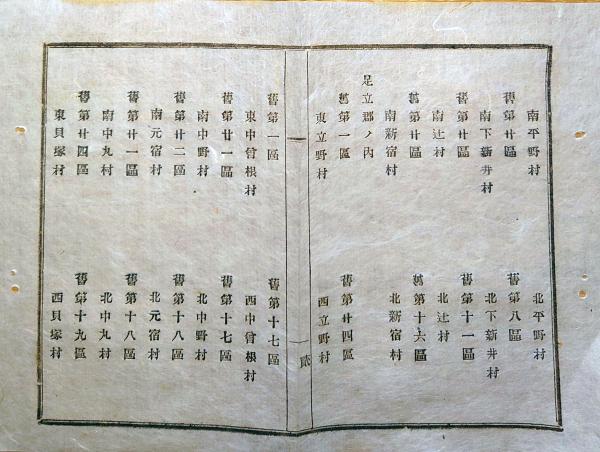 南平野村 北平野村
舊第廿區 舊第八區
南下新井村 北下新井村
舊第廿區 舊第十一區
南辻村 北辻村
舊第廿區 舊第十六區
南新宿村 北新宿村
足立郡ノ內
舊第一區 舊第廿四區
東立野村 西立野村
貳
舊第一區 舊第十七區
東中曾根村 西中曾根村
舊第廿一區 舊第十七區
南中野村 北中野村
舊第廿二區 舊第十八區
南元宿村 北元宿村
舊第廿一區 舊第十八區
南中丸村 北中丸村
舊第廿四區 舊第十九區
東貝塚村 西貝塚村